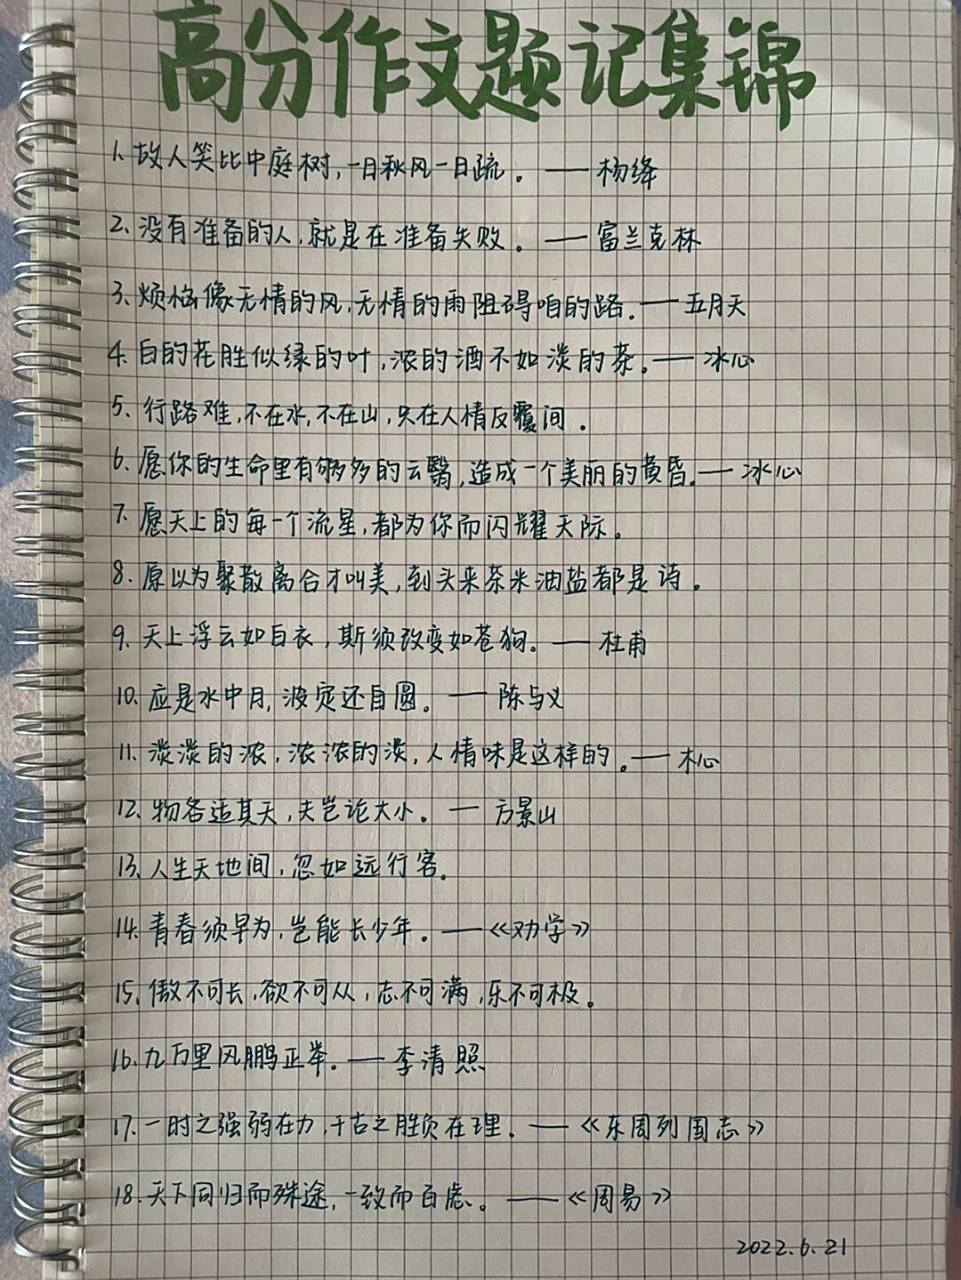 高分作文题记集锦
1、故人笑比中庭树,一日秋风一日疏。——杨绛
2、没有准备的人,就是在准备失败。——富兰克林
3、烦恼像无情的风,无情的雨阻碍咱的路.——五月天
4、白的花胜似绿的叶,浓的酒不如淡的茶。——冰心
5、行路难,不在水,不在山,只在人情反覆间.
6、愿你的生命里有够多的云翳,造成一个美丽的黄昏.——冰心
7、愿天上的每一个流星,都为你而闪耀天际。
8、原以为聚散离合才叫美,到头来茶米油盐都是诗.
9、天上浮云如白衣,斯须改变如苍狗.——杜甫
10、应是水中月,波定还自圆。——陈与义
11、淡淡的浓,浓浓的淡,人情味是这样的。——木心
12、物各适其天,夫岂论大小。——方景山
13、人生天地间,忽如远行客.
14、青春须早为,岂能长少年。——《劝学》
15、傲不可长,欲不可从,志不可满,乐不可极.
16、九万里风鹏正举.——李清照
17、一时之强弱在力,千古之胜负在理.——《东周列国志》
18、天下同归而殊途,一致而百虑。——《周易》
2022.6.21